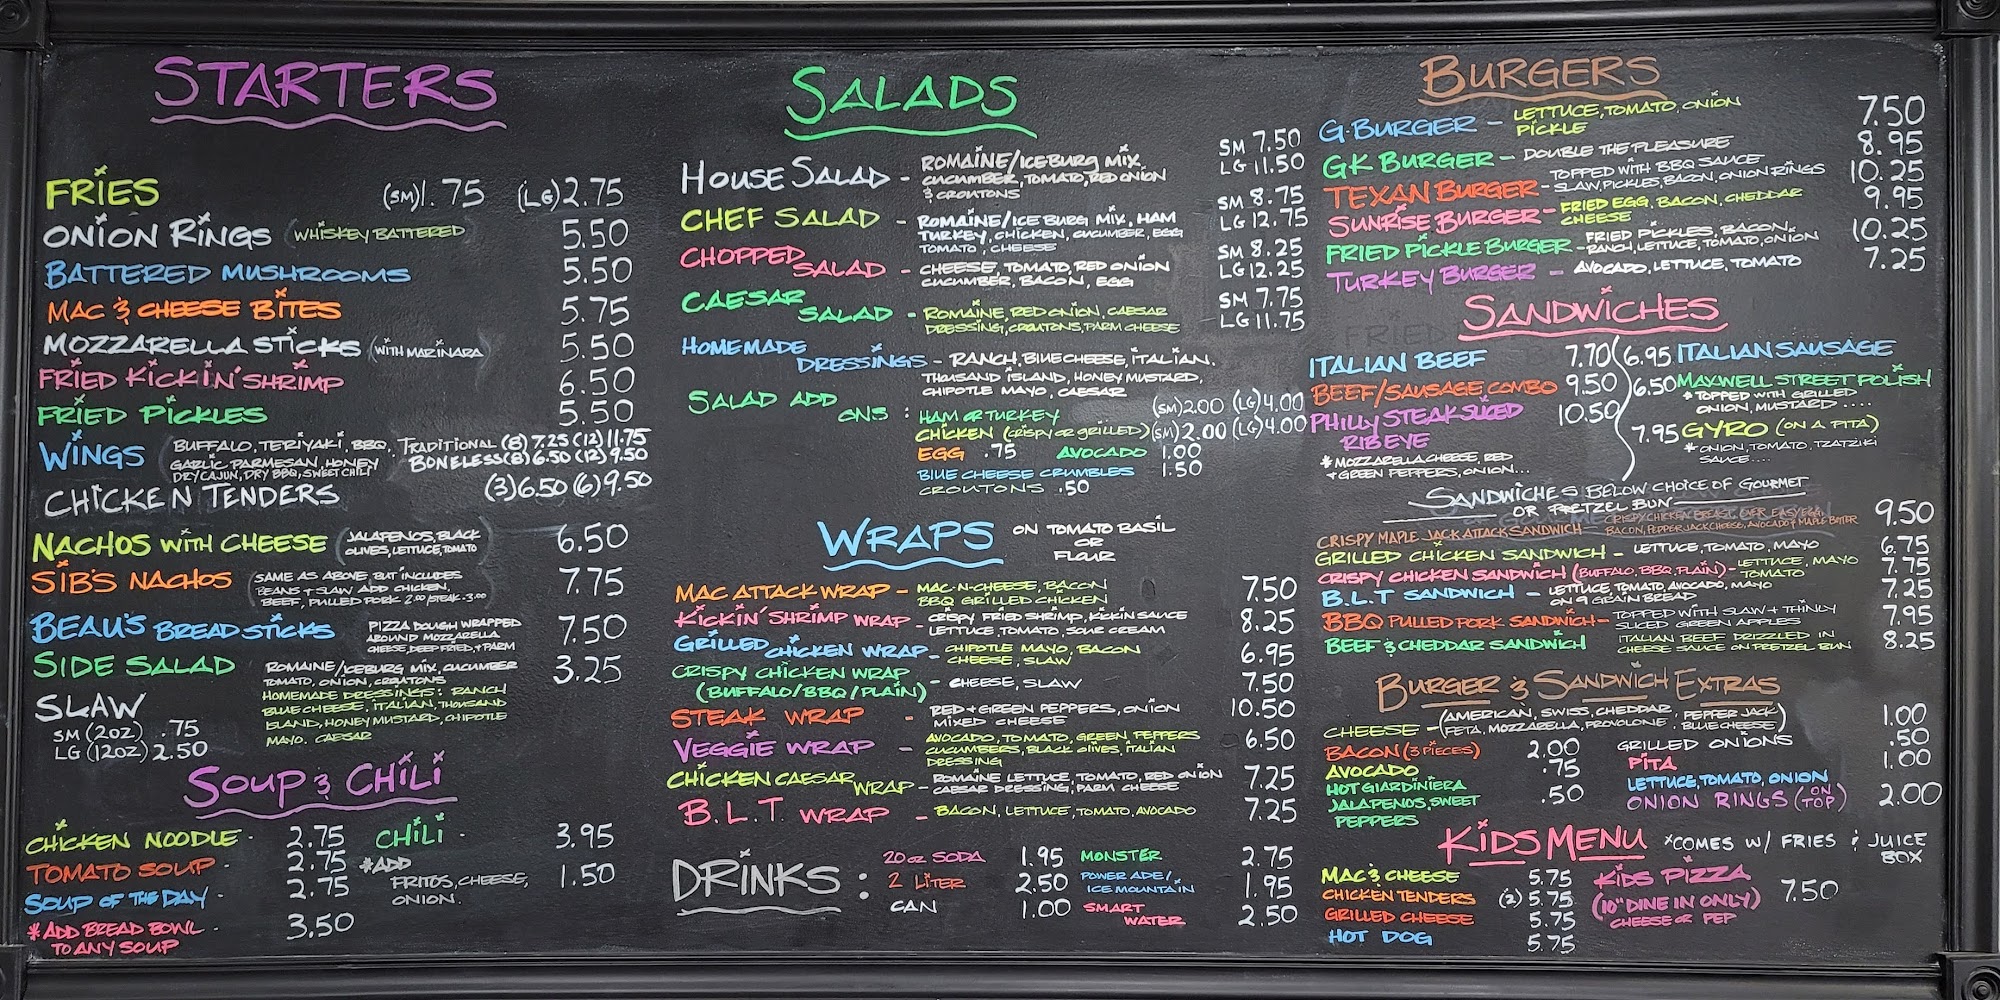 STARTERS
FRIES (SM)1.75 (LG)2.75
ONION RINGS (WHISKEY BATTERED) 5.50
BATTERED MUSHROOMS 5.50
MAC & CHEESE BITES 5.75
MOZZARELLA STICKS (WITH MARINARA) 5.50
FRIED KICKIN' SHRIMP 6.50
FRIED PICKLES 5.50
WINGS BUFFALO, TERIYAKI, BBQ, TRADITIONAL (8) 7.25 (12) 11.75
GARLIC PARMESAN, HONEY BONELESS (8) 6.50 (12) 9.50
DRY CAJUN, DRY BBQ, SWEET CHILI
CHICKEN TENDERS (3) 6.50 (6) 9.50
NACHOS WITH CHEESE (JALAPENOS, BLACK OLIVES, LETTUCE, TOMATO 6.50
SIB'S NACHOS (SAME AS ABOVE BUT INCLUDES 7.75
BEANS + SLAW ADD CHICKEN,
BEEF, PULLED PORK 2.00/STEAK-3.00
BEAU'S BREAD STICKS PIZZA DOUGH WRAPPED 7.50
AROUND MOZZARELLA
CHEESE, DEEP FRIED, + PARM
SIDE SALAD ROMAINE/ICEBURG MIX, CUCUMBER 3.25
TOMATO, ONION, CROUTONS
HOMEMADE DRESSINGS: RANCH
BLUE CHEESE, ITALIAN, THOUSAND
ISLAND, HONEY MUSTARD, CHIPOTLE
MAYO, CAESAR
SLAW
SM (2OZ) .75
LG (12OZ) 2.50
SOUP & CHILI
CHICKEN NOODLE - 2.75
TOMATO SOUP - 2.75
SOUP OF THE DAY - 2.75
*ADD BREAD BOWL - 3.50
TO ANY SOUP
CHILI - 3.95
*ADD
FRITOS, CHEESE, 1.50
ONION.
SALADS
HOUSE SALAD - ROMAINE/ICEBURG MIX, SM 7.50
CUCUMBER, TOMATO, RED ONION LG 11.50
& CROUTONS
CHEF SALAD - ROMAINE/ICEBURG MIX, HAM SM 8.75
TURKEY, CHICKEN, CUCUMBER, EGG LG 12.75
TOMATO, CHEESE
CHOPPED SM 8.25
SALAD - CHEESE, TOMATO, RED ONION LG 12.25
CUCUMBER, BACON, EGG
CAESAR SM 7.75
SALAD - ROMAINE, RED ONION, CAESAR LG 11.75
DRESSING, CROUTONS, PARM CHEESE
HOMEMADE
DRESSINGS - RANCH, BLUE CHEESE, ITALIAN.
THOUSAND ISLAND, HONEY MUSTARD,
CHIPOTLE MAYO, CAESAR
SALAD ADD
ONS : HAM OR TURKEY (SM)2.00 (LG)4.00
CHICKEN (CRISPY OR GRILLED) (SM)2.00 (LG)4.00
EGG .75 AVOCADO 1.00
BLUE CHEESE CRUMBLES 1.50
CROUTONS .50
WRAPS ON TOMATO BASIL
OR
FLOUR
MAC ATTACK WRAP - MAC-N-CHEESE, BACON 7.50
BBQ GRILLED CHICKEN
KICKIN' SHRIMP WRAP - CRISPY FRIED SHRIMP, KICKIN SAUCE 8.25
LETTUCE, TOMATO, SOUR CREAM
GRILLED CHICKEN WRAP - CHIPOTLE MAYO, BACON 6.95
CHEESE, SLAW
CRISPY CHICKEN WRAP - CHEESE, SLAW 7.50
(BUFFALO/BBQ/PLAIN)
STEAK WRAP - RED + GREEN PEPPERS, ONION 10.50
MIXED CHEESE
VEGGIE WRAP - AVOCADO, TOMATO, GREEN PEPPERS 6.50
CUCUMBERS, BLACK OLIVES, ITALIAN
DRESSING
CHICKEN CAESAR WRAP - ROMAINE LETTUCE, TOMATO, RED ONION 7.25
CAESAR DRESSING, PARM CHEESE
B.L.T. WRAP - BACON, LETTUCE, TOMATO, AVOCADO 7.25
DRINKS :
20 OZ SODA 1.95 MONSTER 2.75
2 LITER 2.50 POWERADE/ 1.95
ICE MOUNTAIN
CAN 1.00 SMART WATER 2.50
BURGERS
G-BURGER - LETTUCE, TOMATO, ONION 7.50
PICKLE
GK BURGER - DOUBLE THE PLEASURE 8.95
TEXAN BURGER - TOPPED WITH BBQ SAUCE 10.25
SLAW, PICKLES, BACON, ONION RINGS
SUNRISE BURGER - FRIED EGG, BACON, CHEDDAR 9.95
CHEESE
FRIED PICKLE BURGER - FRIED PICKLES, BACON, 10.25
RANCH, LETTUCE, TOMATO, ONION
TURKEY BURGER - AVOCADO, LETTUCE, TOMATO 7.25
SANDWICHES
ITALIAN BEEF 7.70
BEEF/SAUSAGE COMBO 9.50
PHILLY STEAK SLICED 10.50
RIBEYE
*MOZZARELLA CHEESE, RED
+ GREEN PEPPERS, ONION...
6.95 ITALIAN SAUSAGE
6.50 MAXWELL STREET POLISH
*TOPPED WITH GRILLED
ONION, MUSTARD ....
7.95 GYRO (ON A PITA)
*ONION, TOMATO, TZATZIKI
SAUCE....
SANDWICHES BELOW CHOICE OF GOURMET
OR PRETZEL BUN
CRISPY MAPLE JACK ATTACK SANDWICH - CRISPY CHICKEN BREAST, OVER EASY EGG, 9.50
BACON, PEPPER JACK CHEESE, AVOCADO + MAPLE BUTTER
GRILLED CHICKEN SANDWICH - LETTUCE, TOMATO, MAYO 6.75
CRISPY CHICKEN SANDWICH (BUFFALO, BBQ, PLAIN) - LETTUCE, MAYO 7.75
TOMATO
B.L.T SANDWICH - LETTUCE, TOMATO, AVOCADO, MAYO 7.25
ON 9 GRAIN BREAD
BBQ PULLED PORK SANDWICH - TOPPED WITH SLAW + THINLY 7.95
SLICED GREEN APPLES
BEEF & CHEDDAR SANDWICH ITALIAN BEEF DRIZZLED IN 8.25
CHEESE SAUCE ON PRETZEL BUN
BURGER & SANDWICH EXTRAS
CHEESE - (AMERICAN, SWISS, CHEDDAR, PEPPER JACK) 1.00
(FETA, MOZZARELLA, PROVOLONE, BLUE CHEESE)
BACON (3 PIECES) 2.00 GRILLED ONIONS .50
AVOCADO .75 PITA 1.00
HOT GIARDINIERA .50 LETTUCE, TOMATO, ONION
JALAPENOS, SWEET ONION RINGS (ON TOP) 2.00
PEPPERS
KIDS MENU *COMES W/ FRIES & JUICE
BOX
MAC & CHEESE 5.75
CHICKEN TENDERS (2) 5.75
GRILLED CHEESE 5.75
HOT DOG 5.75
KIDS PIZZA 7.50
(10" DINE IN ONLY)
CHEESE OR PEP